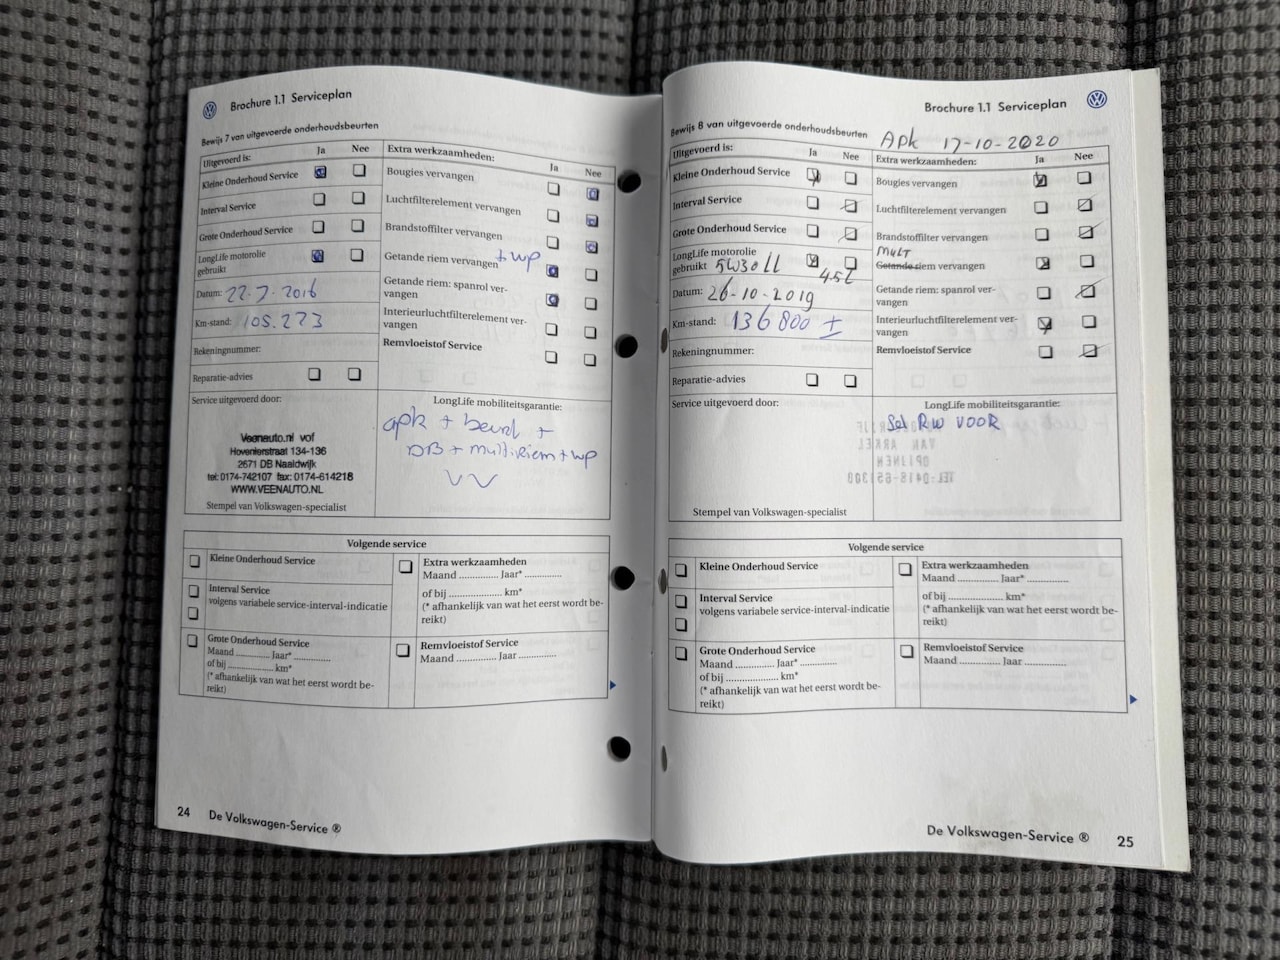 Brochure 1.1 Serviceplan
Bewijs 7 van uitgevoerde onderhoudsbeurten
Uitgevoerd is: Ja Nee
Kleine Onderhoud Service
Interval Service
Grote Onderhoud Service
LongLife motorolie
gebruikt
Datum: 22-7-2016
Km-stand: 105.273
Rekeningnummer:
Reparatie-advies
Extra werkzaamheden: Ja Nee
Bougies vervangen
Luchtfilterelement vervangen
Brandstoffilter vervangen
Getande riem vervangen + wp
Getande riem: spanrol ver-
vangen
Interieurluchtfilterelement ver-
vangen
Remvloeistof Service
Service uitgevoerd door:
Veenauto.nl vof
Hovenierstraat 134-136
2671 DB Naaldwijk
tel: 0174-742107 fax: 0174-614218
WWW.VEENAUTO.NL
Stempel van Volkswagen-specialist
LongLife mobiliteitsgarantie:
apk + beurt +
DB + multiriem + wp
VV
Volgende service
Kleine Onderhoud Service
Interval Service
volgens variabele service-interval-indicatie
Grote Onderhoud Service
Maand .............. Jaar* ..............
of bij .................... km*
(* afhankelijk van wat het eerst wordt be-
reikt)
Extra werkzaamheden
Maand .............. Jaar* ..............
of bij .................... km*
(* afhankelijk van wat het eerst wordt be-
reikt)
Remvloeistof Service
Maand .............. Jaar ..............
24 De Volkswagen-Service ®
Brochure 1.1 Serviceplan
Bewijs 8 van uitgevoerde onderhoudsbeurten
Apk 17-10-2020
Uitgevoerd is: Ja Nee
Kleine Onderhoud Service
Interval Service
Grote Onderhoud Service
LongLife motorolie
gebruikt 5W30 LL 4.5L
Datum: 26-10-2019
Km-stand: 136800 ±
Rekeningnummer:
Reparatie-advies
Extra werkzaamheden: Ja Nee
Bougies vervangen
Luchtfilterelement vervangen
Brandstoffilter vervangen
Mult
Getande riem vervangen
Getande riem: spanrol ver-
vangen
Interieurluchtfilterelement ver-
vangen
Remvloeistof Service
Service uitgevoerd door:
VAN ARKEL
OPIJNEN
TEL: 0418-651308
Stempel van Volkswagen-specialist
LongLife mobiliteitsgarantie:
Set RW VOOR
Volgende service
Kleine Onderhoud Service
Interval Service
volgens variabele service-interval-indicatie
Grote Onderhoud Service
Maand .............. Jaar* ..............
of bij .................... km*
(* afhankelijk van wat het eerst wordt be-
reikt)
Extra werkzaamheden
Maand .............. Jaar* ..............
of bij .................... km*
(* afhankelijk van wat het eerst wordt be-
reikt)
Remvloeistof Service
Maand .............. Jaar ..............
De Volkswagen-Service ® 25